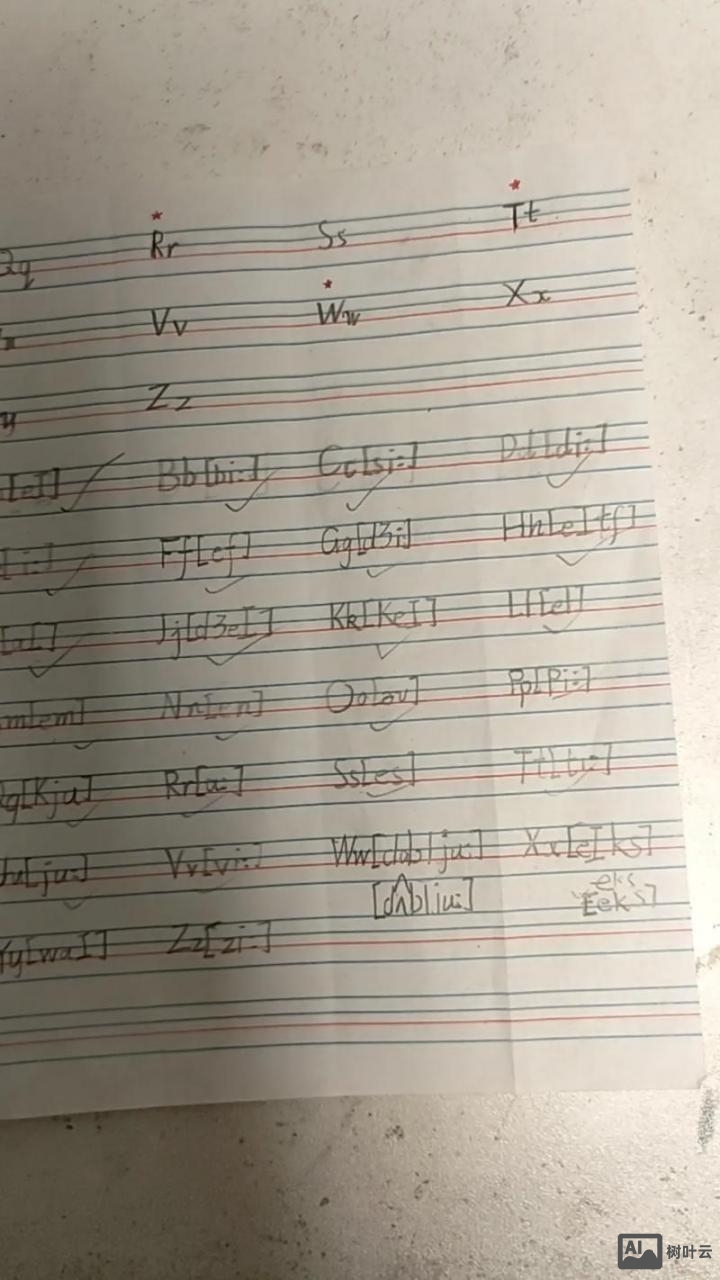 Qq Rr Ss Tt
Vv Ww Xx
y Zz
[eI] Bb[bi:] Cc[si:] Dd[di:]
[i:] Ff[ef] Gg[dʒi:] Hh[eItʃ]
[aI] Jj[dʒeI] Kk[KeI] Ll[el]
m[em] Nn[en] Oo[əʊ] Pp[Pi:]
Qq[Kju] Rr[a:] Ss[es] Tt[ti:]
Uu[ju:] Vv[vi:] Ww[dab|ju:] Xx[eIks]
eks
[dʌb|ju:] [eks]
Yy[waI] Zz[zi:]
AI 树叶云